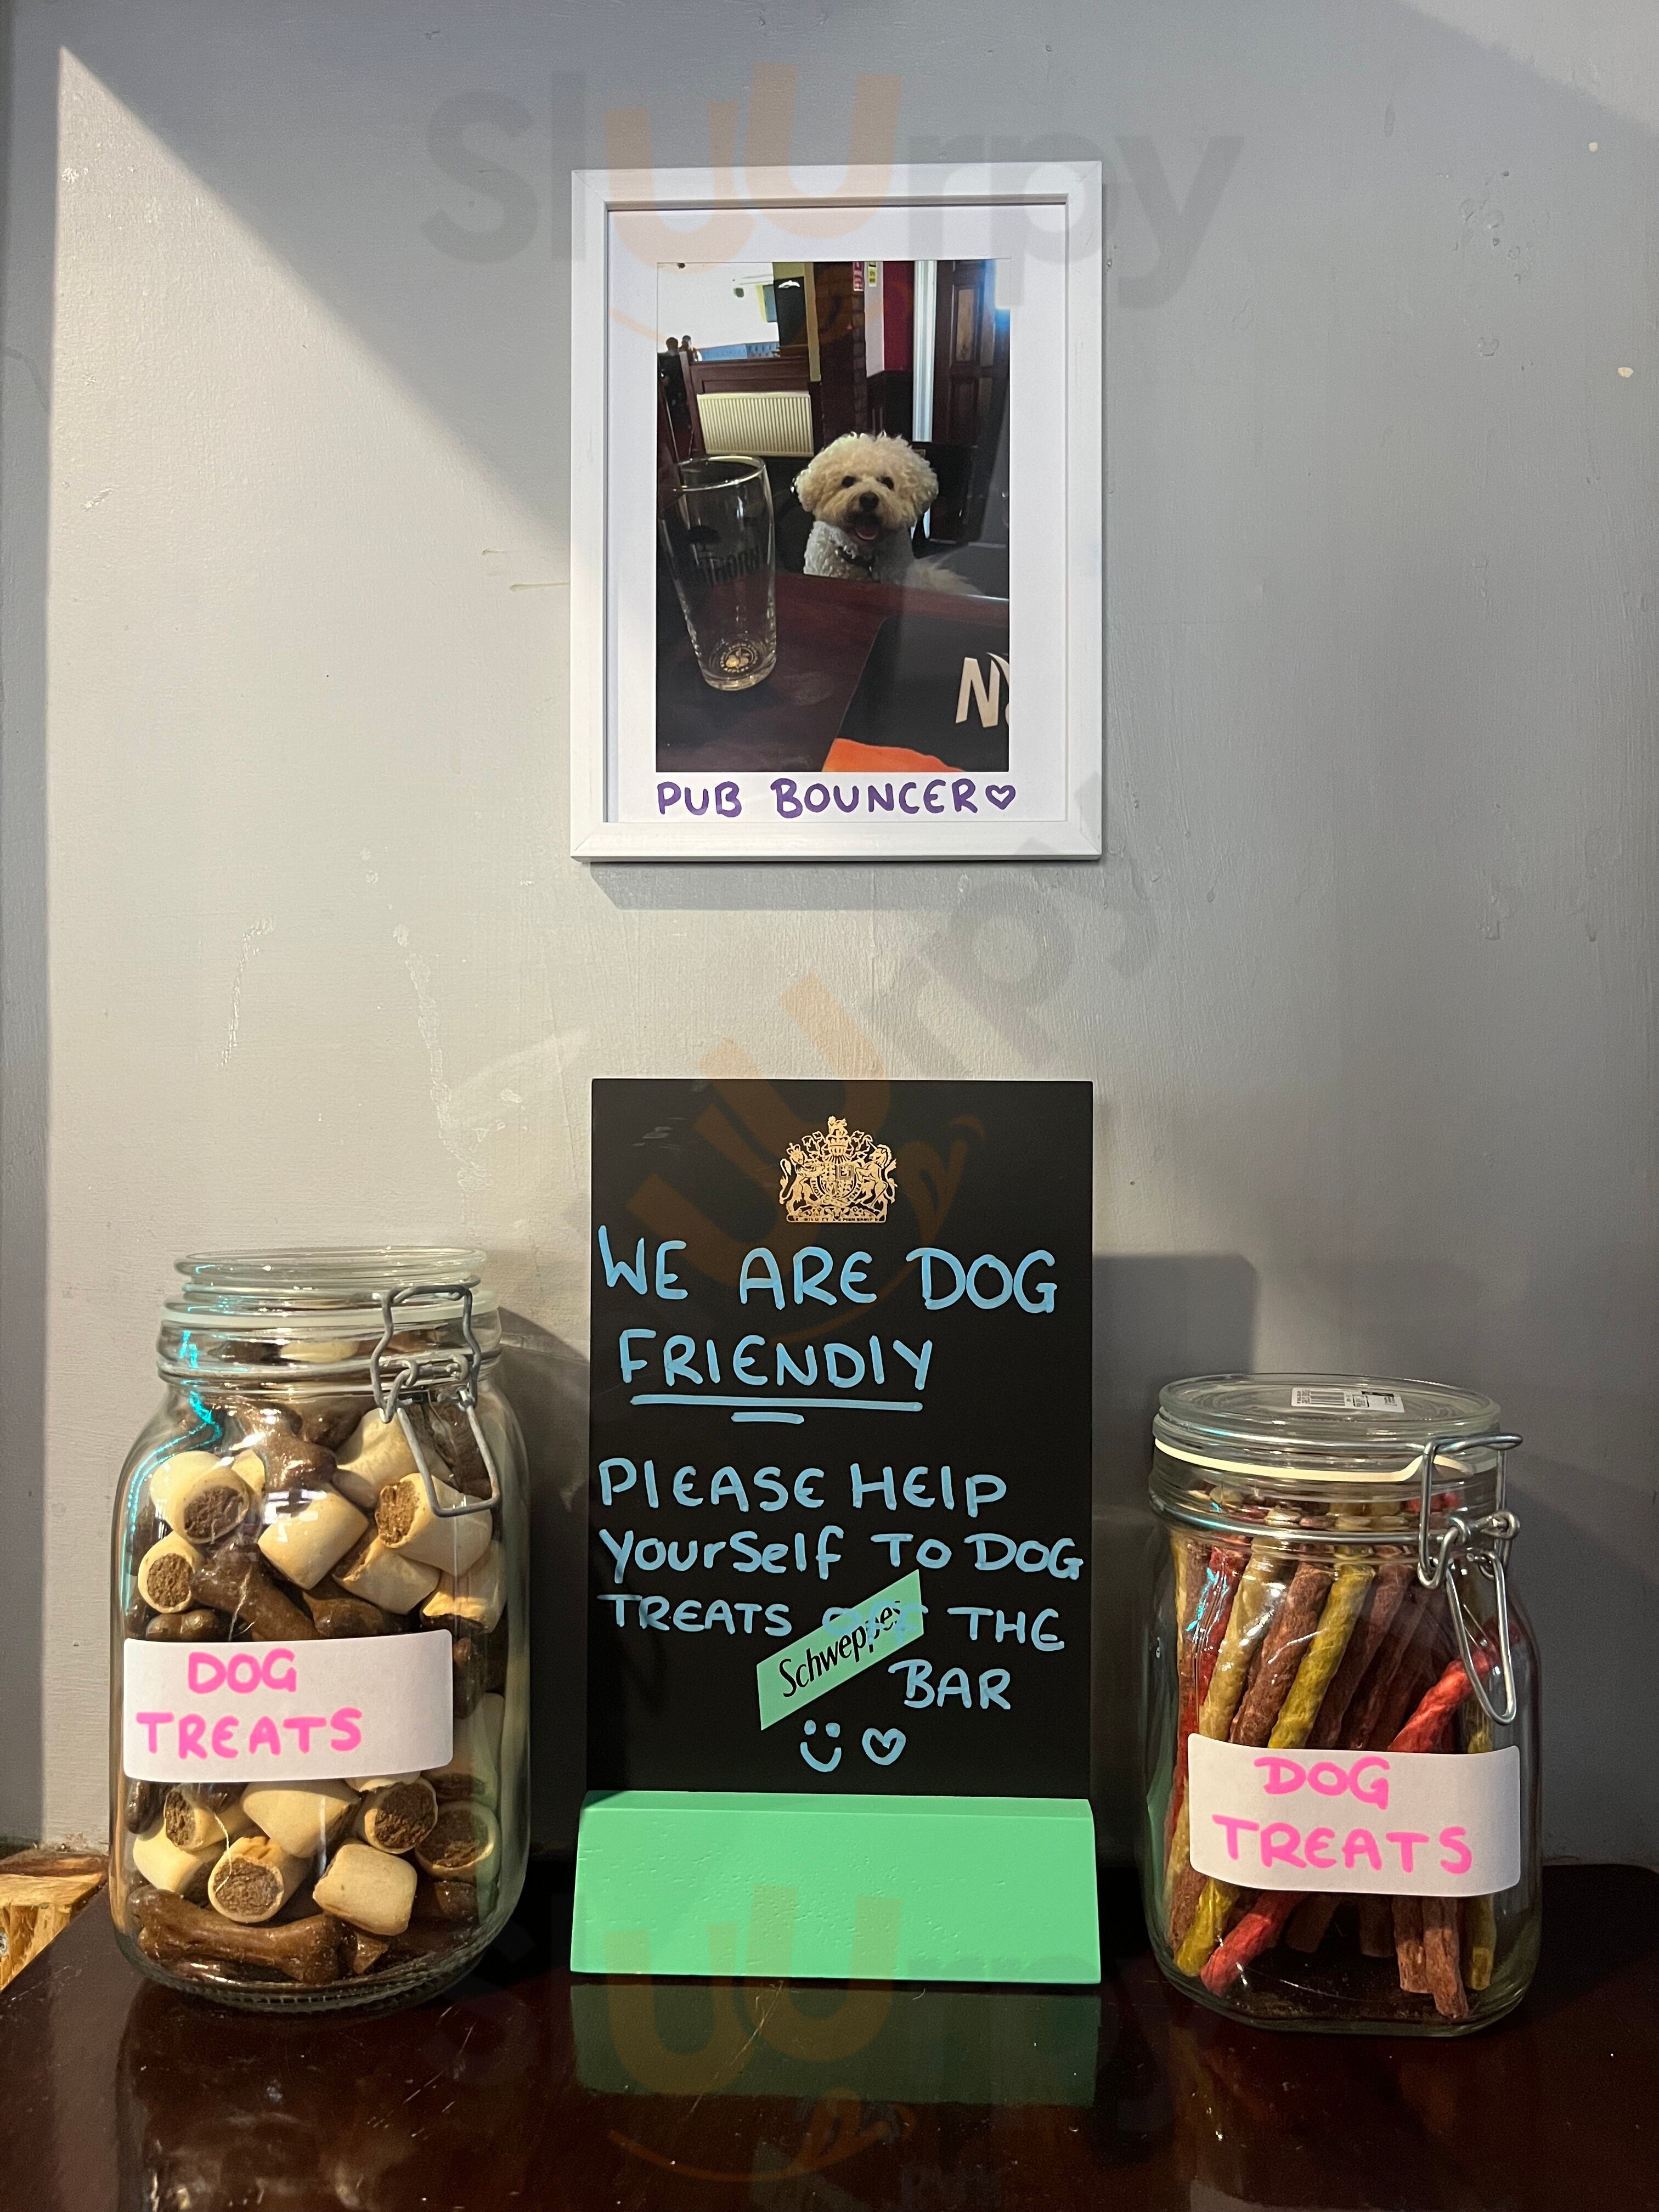 sluurpy
THORN
N
PUB BOUNCER♡
sluurpy
WE ARE DOG
FRIENDLY
PLEASE HELP
YourSelf TO DOG
TREATS OFF THE
Schweppes
BAR
DOG
TREATS
DOG
TREATS
sluurpy